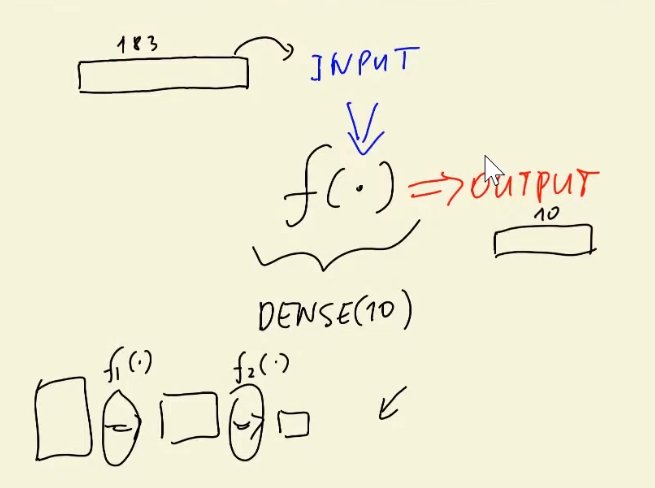 183
INPUT
f(·) ⇒ OUTPUT
10
DENSE(10)
f₁(·) f₂(·)